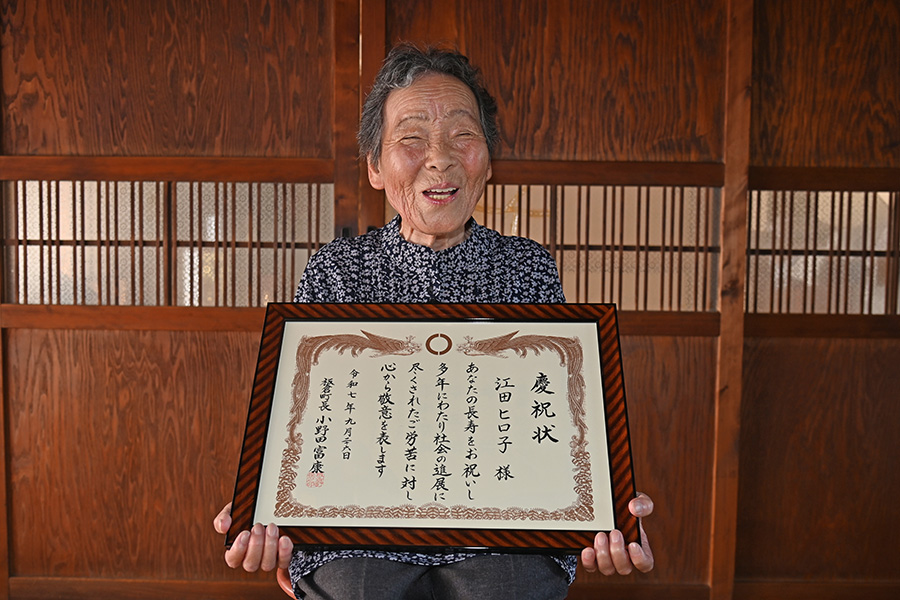 慶祝状
江田ヒロ子 様
あなたの長寿をお祝いし
多年にわたり社会の進展に
尽くされたご労苦に対し
心から敬意を表します
令和七年九月二十八日
板倉町長 小野田富康